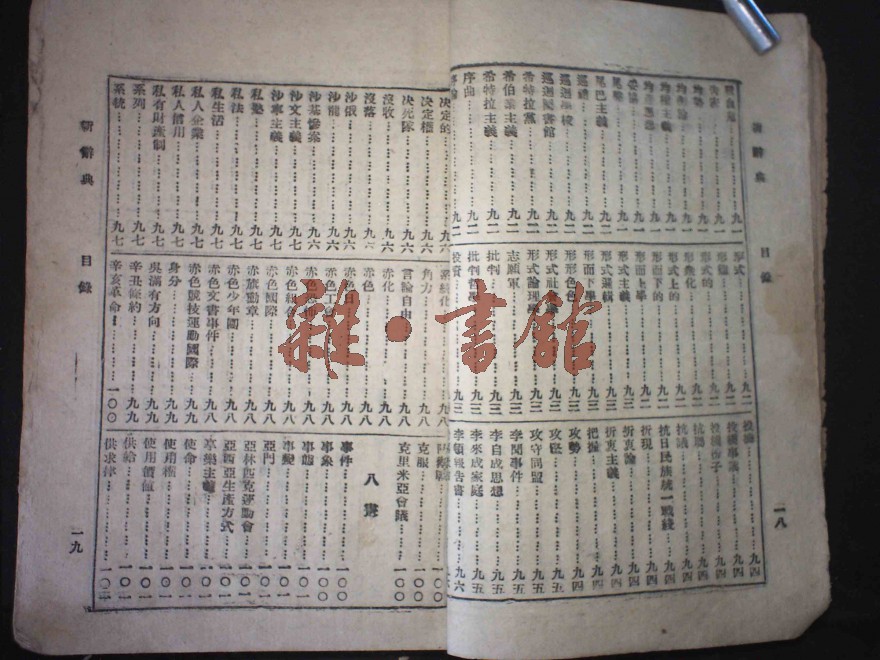 新辭典　目錄　一八
均權主義……九一
委員……九一
尾巴主義……九一
巡迴學校……九二
巡迴圖書館……九二
希特拉黨……九二
希伯來主義……九二
序曲……九二
序論……九二
形式……九二
形式的……九二
形式上的……九二
形而下的……九二
形而上學……九二
形式主義……九二
形式邏輯……九三
形而下學……九三
形形色色……九三
形式論理學……九三
志願軍……九三
批判……九三
批判哲學……九三
投資……九三
投機事業……九四
投機份子……九四
抗議……九四
抗日民族統一戰綫……九四
折現……九四
折衷論……九四
折衷主義……九四
把握……九四
攻勢……九四
攻訐……九五
攻守同盟……九五
李聞事件……九五
李自成思想……九五
李來成家庭……九五
李頓報告書……九六
新辭典　目錄　一九
決定的……九六
決定權……九六
決死隊……九六
沒收……九六
沒落……九六
沙俄……九六
沙龍……九六
沙基慘案……九六
沙文主義……九七
沙寧主義……九七
私塾……九七
私法……九七
私生活……九七
私人企業……九七
私人僱用……九七
私有財產制……九七
系列……九七
系統……九七
系統化……九八
角力……九八
言論自由……九八
赤化……九八
赤色……九八
赤色國際……九八
赤旗勳章……九八
赤色少年團……九八
赤色文書事件……九八
赤色競技運動國際……九九
身分……九九
吳滿有方向……九九
辛丑條約……九九
辛亥革命……一〇〇
克服……一〇〇
克里米亞會議……一〇〇
八畫
事件……一〇〇
事象……一〇〇
事態……一〇一
事變……一〇一
亞門……一〇一
亞林匹克運動會……一〇一
亞細亞生產方式……一〇一
享樂主義……一〇一
使命……一〇一
使用權……一〇一
使用價值……一〇一
供給……一〇二
供求律……一〇二
雜·書館